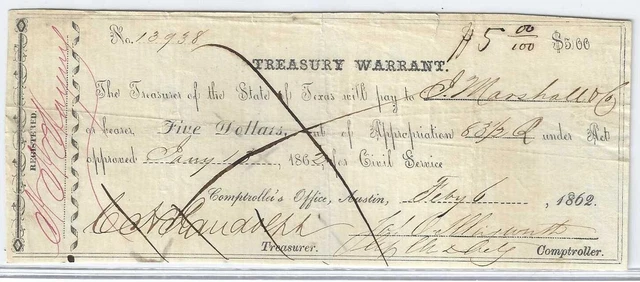 No. 13938
$5 00/100 $5.00
TREASURY WARRANT.
The Treasurer of the State of Texas will pay to J. Marshall & Co
or bearer, Five Dollars, out of Appropriation under Act
approved 1862, for Civil Service
Comptroller's Office, Austin, Feby 6, 1862.
C H Randolph
Treasurer. Comptroller.
REGISTERED.